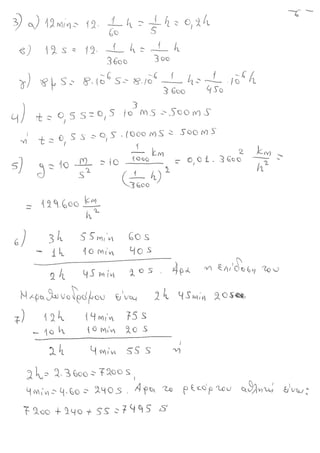 6
3) α) 12min = 12 · 1/60 h = 1/5 h = 0,2h
β) 12 s = 12 · 1/3600 h = 1/300 h
γ) 8μs = 8·10⁻⁶ s = 8·10⁻⁶ 1/3600 h = 1/450 10⁻⁶ h
4) t = 0,5 s = 0,5 10³ ms = 500 ms
ή t = 0,5 s = 0,5 · 1000 ms = 500 ms
5) g = 10 m/s² = 10 (1/1000 km)/(1/3600 h)² = 0,01 · 3600² km/h² =
= 129.600 km/h²
6) 3h 55min 60s
- 1h 10min 40s
2h 45min 20s. Άρα η επίδοση του
Μαραθωνοδρόμου είναι 2h 45min 20sec
7) 12h 14min 75s
- 10h 10min 20s
2h 4min 55s ή
2h = 2·3600 = 7200s,
4min = 4·60 = 240s. Άρα το ρεκόρ του αθλητή είναι:
7200 + 240 + 55 = 7495 s